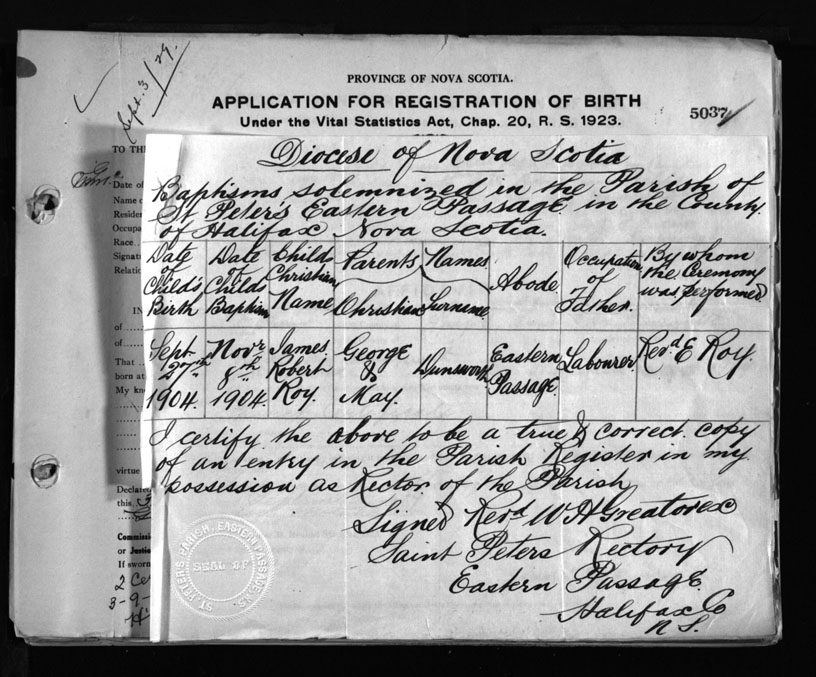 Sept. 3/29.
PROVINCE OF NOVA SCOTIA.
APPLICATION FOR REGISTRATION OF BIRTH
Under the Vital Statistics Act, Chap. 20, R. S. 1923.
5037
TO TH
Date of
Name o
Residen
Occupa
Race
Signatu
Relatio
IN
of
of
That
born at
My kno
virtue
Declared
this
Commissi
or Justic
If sworn
2 Ce
3-9-
H
Diocese of Nova Scotia
Baptisms solemnized in the Parish of
St Peter's Eastern Passage in the County
of Halifax Nova Scotia.
Date of Child's Birth
Date of Childs Baptism
Childs Christian Name
Parents Names
Christian
Surname
Abode
Occupation of Father.
By whom the Ceremony was performed
Sept 27th 1904.
Novr 8th 1904.
James Robert Roy.
George & May.
Dunsworth
Eastern Passage.
Labourer.
Revd E Roy.
I certify the above to be a true & correct copy
of an entry in the Parish Register in my
possession as Rector of the Parish
Signed Revd W H Greatorex
Saint Peters Rectory
Eastern Passage
Halifax Co
N S.
ST. PETER'S PARISH, EASTERN PASSAGE, N.S.
SEAL OF